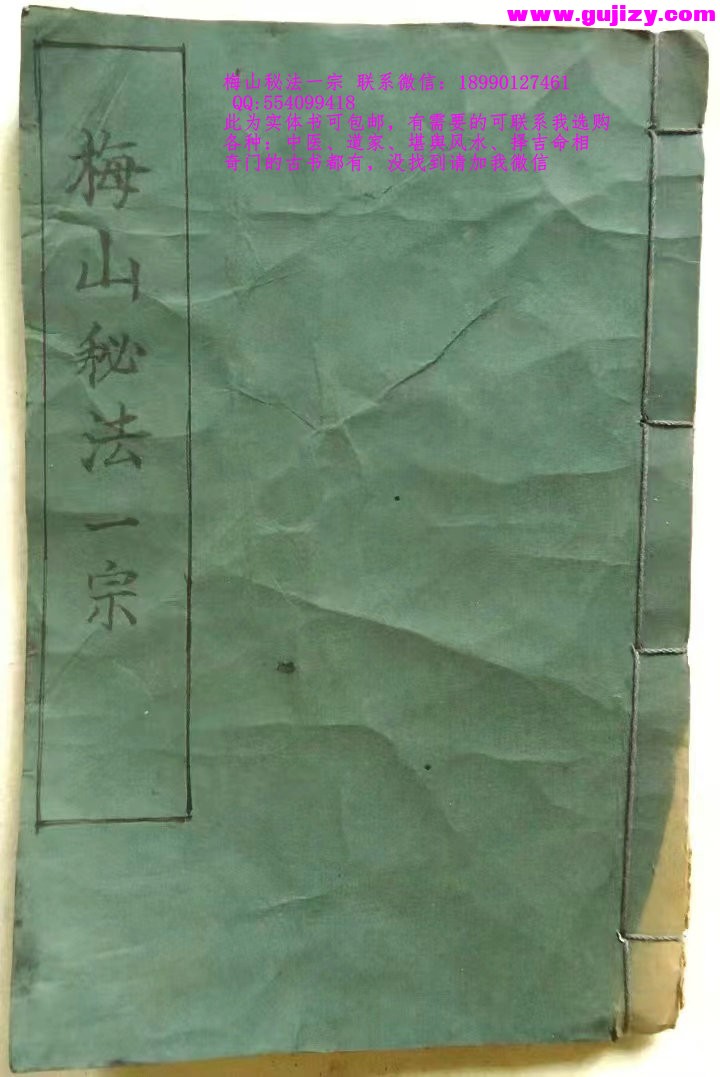 www.gujizy.com
梅山秘法一宗 联系微信：18990127461
QQ:554099418
此为实体书可包邮，有需要的可联系我选购
各种：中医、道家、堪舆风水、择吉命相
奇门的古书都有，没找到请加我微信
梅山秘法一宗